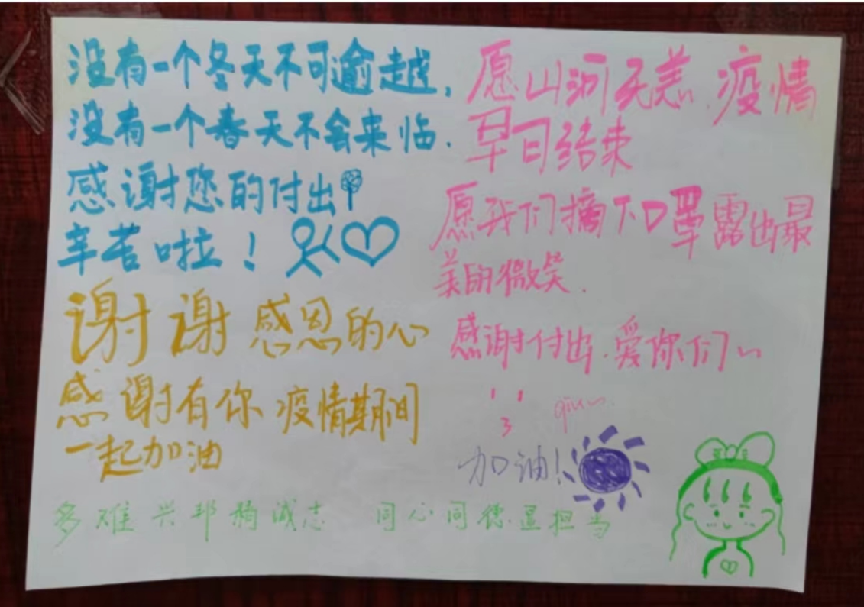 没有一个冬天不可逾越,
没有一个春天不会来临.
感谢您的付出
辛苦啦!
谢谢 感恩的心
感谢有你 疫情期间
一起加油
愿山河无恙.疫情
早日结束
愿我们摘下口罩露出最
美的微笑.
感谢付出.爱你们~
qiu~
加油!
多难兴邦 诚志 同心同德显担当